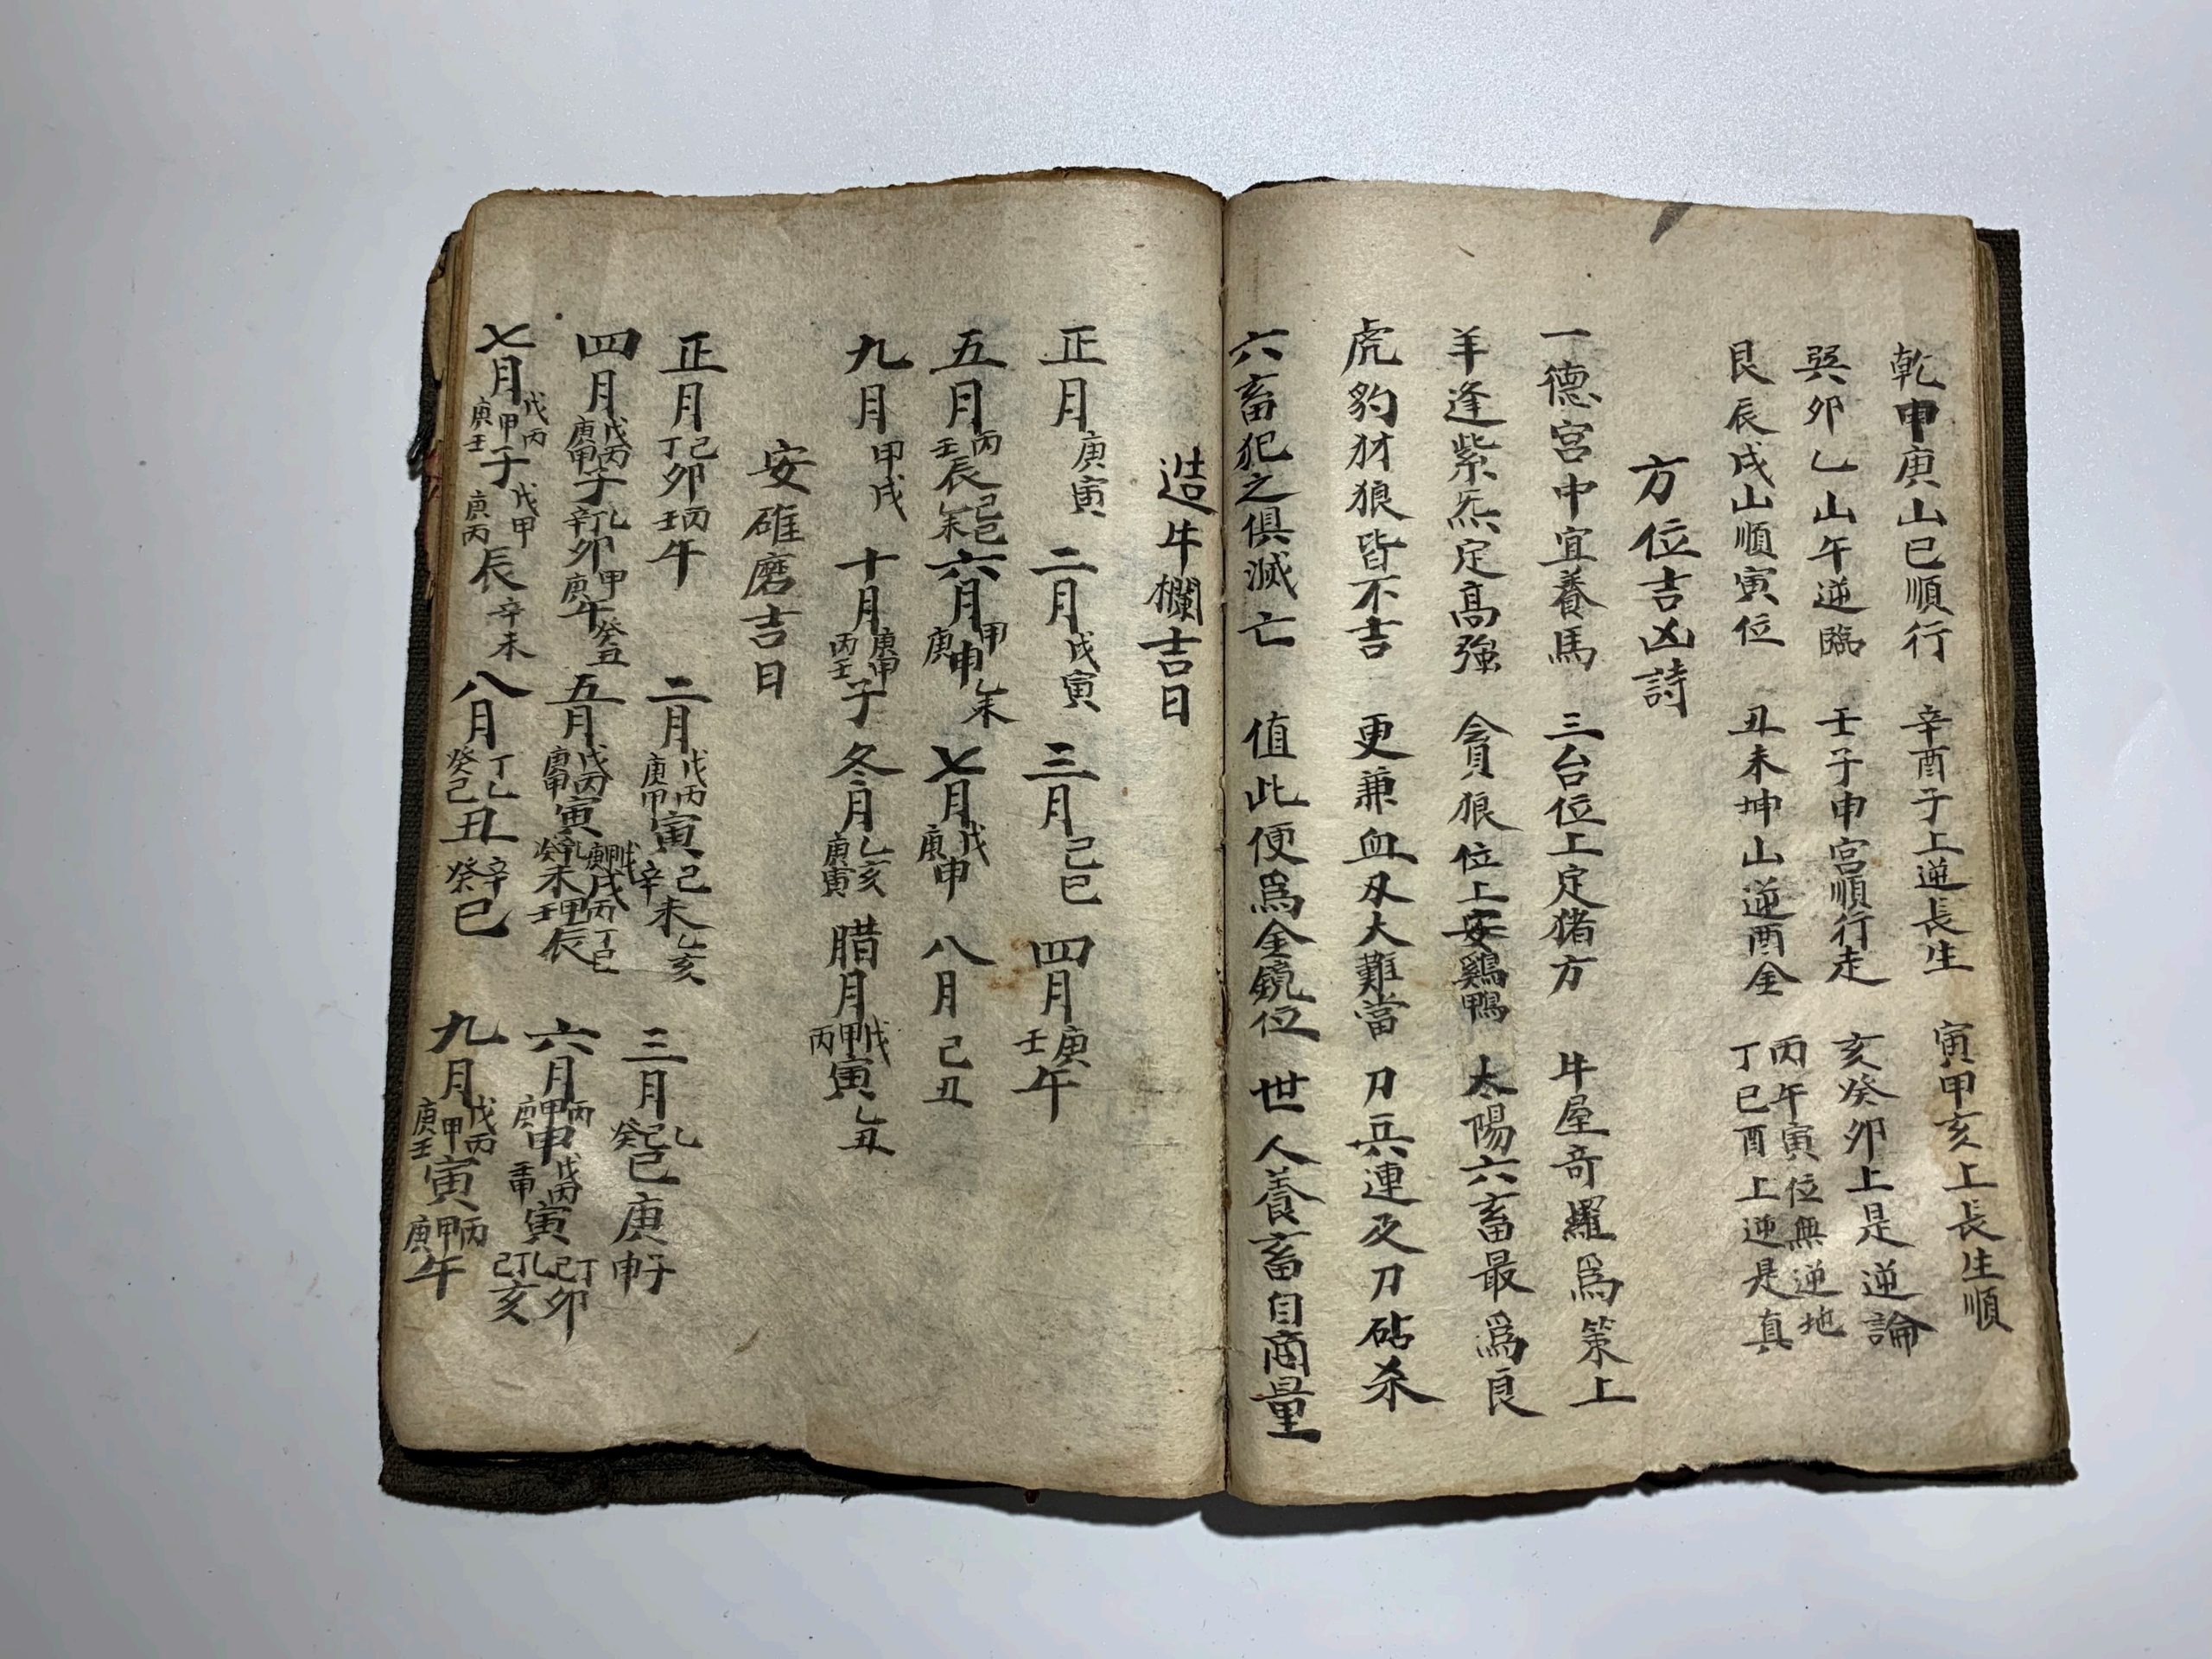 乾甲庚山巳順行 辛酉子上逆長生 寅甲亥上長生順
巽卯乙山午逆臨 壬子申宮順行走 亥癸卯上是逆論
艮辰戌山順寅位 丑未坤山逆酉金 丙午寅位無逆地
丁巳酉上逆是真
方位吉凶詩
一德宮中宜養馬 三台位上定猪方 牛屋奇羅為策上
羊逢紫炁定高強 貪狼位上安鷄鴨 太陽六畜最為良
虎豹犲狼皆不吉 更兼血刃大難當 刀兵連及刀砧杀
六畜犯之俱滅亡 值此便為金鏡位 世人養畜自商量
造牛欄吉日
正月庚寅 二月戊寅 三月己巳 四月庚壬午
五月丙壬辰己巳乙未 六月甲庚申乙未 七月戊庚申 八月己丑
九月甲戌 十月庚甲丙壬子 冬月乙亥庚寅 腊月戊甲丙寅乙丑
安碓磨吉日
正月己丁卯丙壬午 二月戊丙庚甲寅己辛未乙亥 三月乙己癸巳庚申子
四月戊丙庚甲子乙丁辛卯甲庚午癸丑 五月戊丙庚甲寅
六月丙甲庚申戊丙
七月戊丙甲庚壬子戊甲庚丙辰辛未 八月丁乙癸己丑辛癸巳 九月戊丙甲庚壬寅丙甲庚午